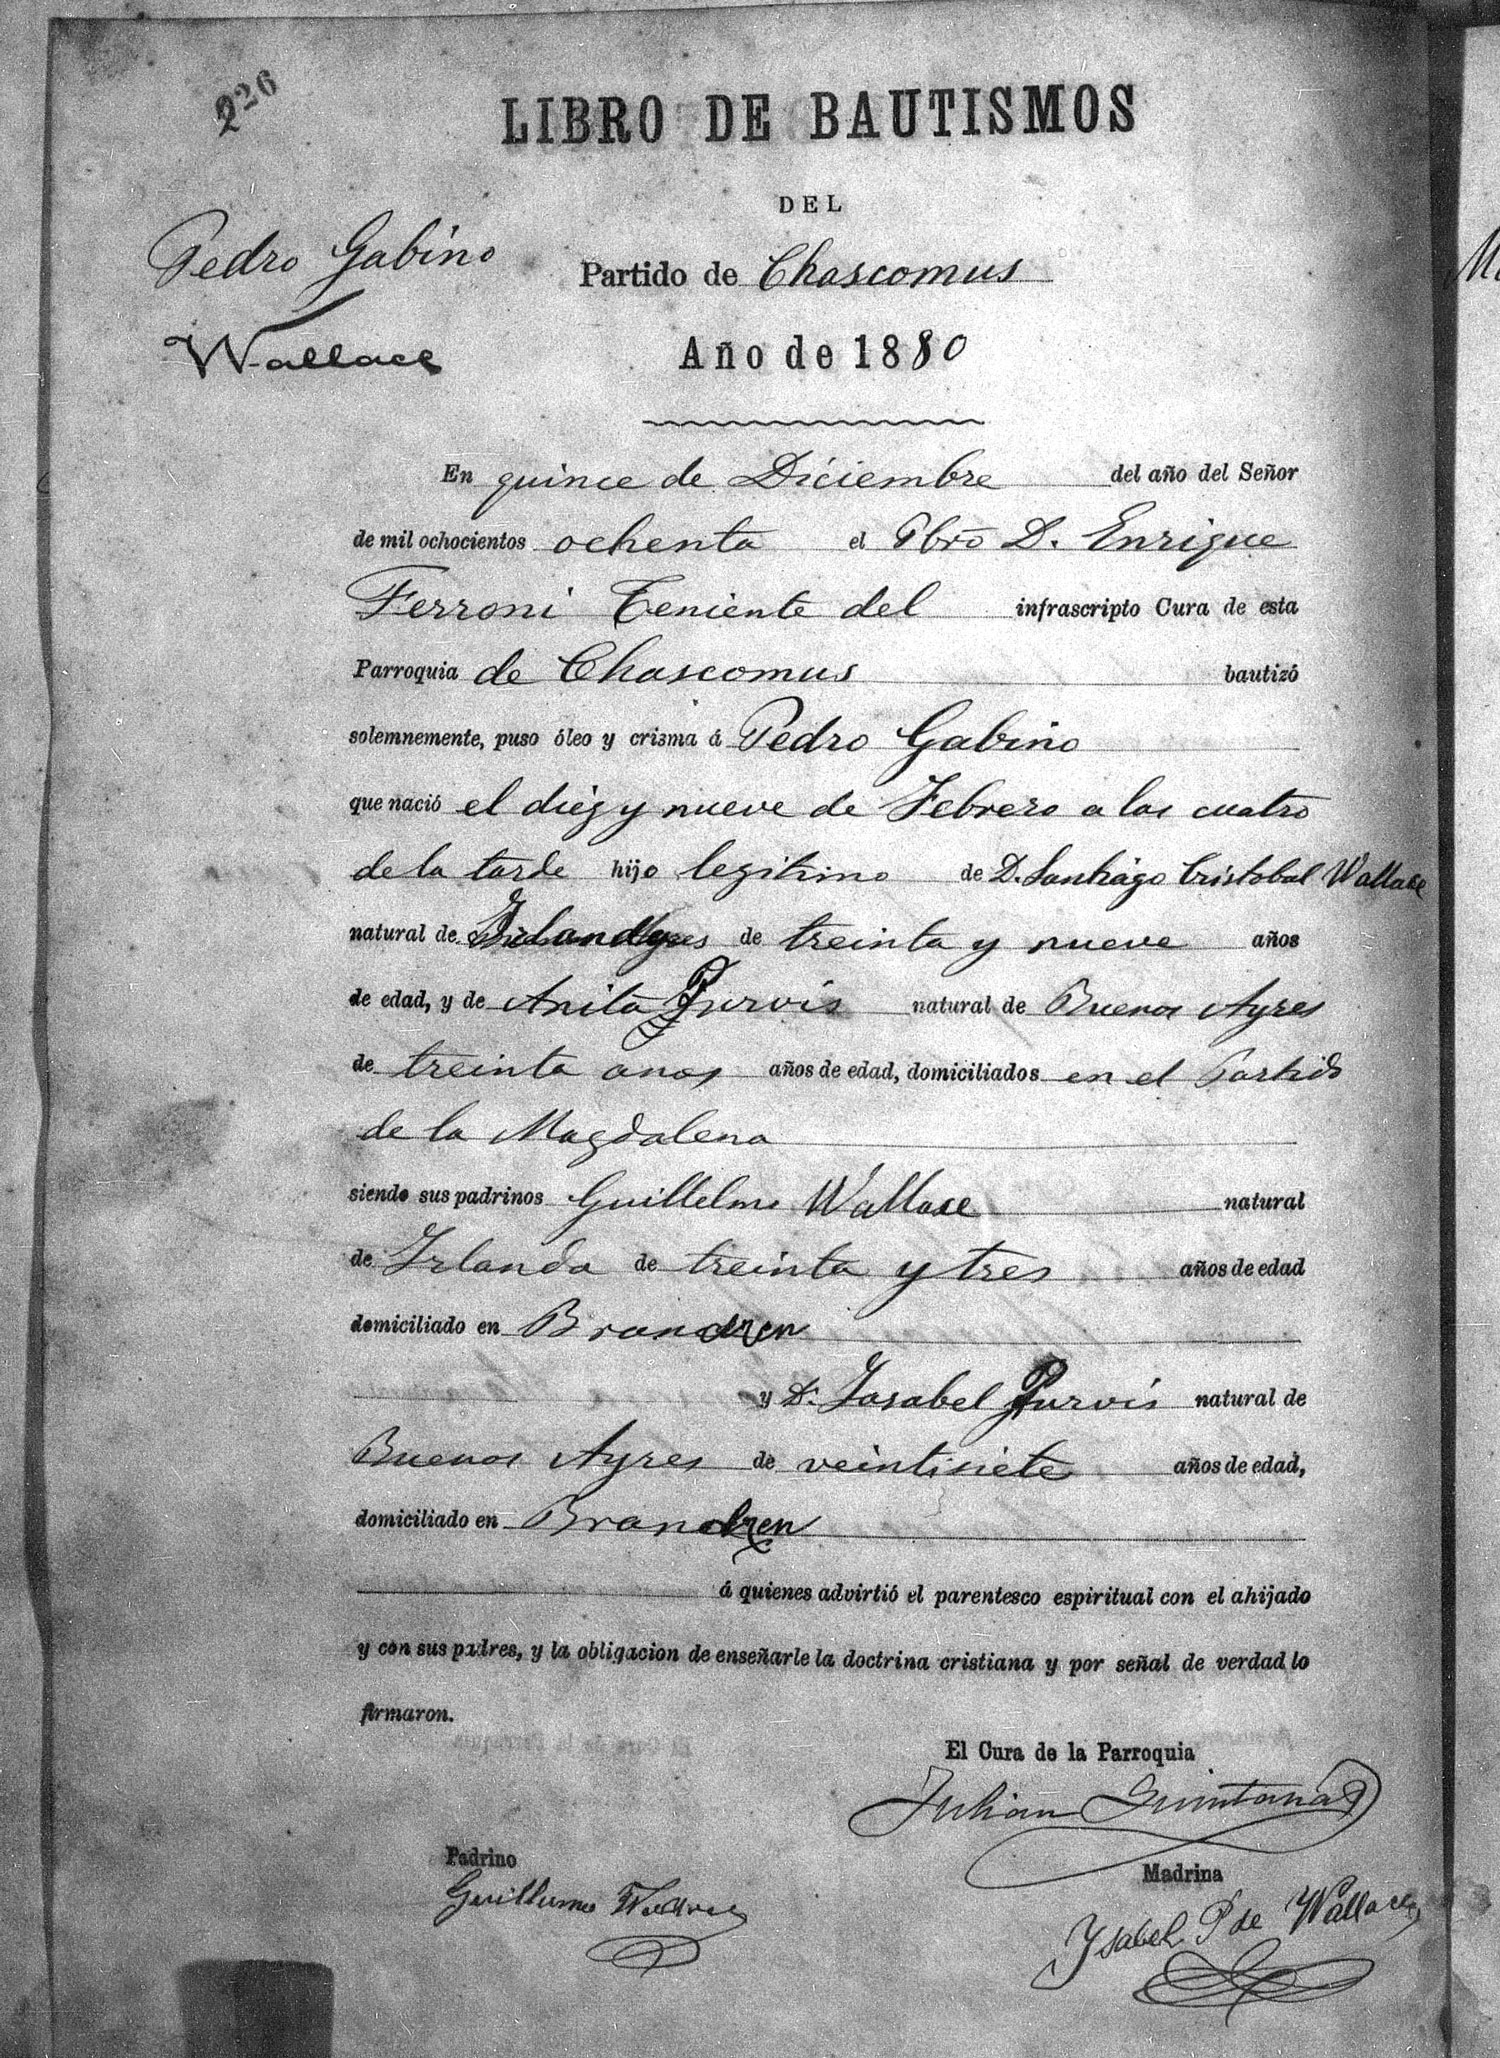 226
LIBRO DE BAUTISMOS
DEL
Pedro Gabino
Wallace
Partido de Chascomus
Año de 1880
En quince de Diciembre del año del Señor
de mil ochocientos ochenta el Pbro D. Enrique
Ferroni Teniente del infrascripto Cura de esta
Parroquia de Chascomus bautizó
solemnemente, puso óleo y crisma á Pedro Gabino
que nació el diez y nueve de Febrero a las cuatro
de la tarde hijo legitimo de D. Santiago Cristobal Wallace
natural de de treinta y nueve años
de edad, y de Anita Purvis natural de Buenos Ayres
de treinta anos años de edad, domiciliados en el Partido
de la Magdalena
siendo sus padrinos Guillelmo Wallace natural
de Irlanda de treinta y tres años de edad
domiciliado en
y Da. Isabel Purvis natural de
Buenos Ayres de veintisiete años de edad,
domiciliado en
á quienes advirtió el parentesco espiritual con el ahijado
y con sus padres, y la obligacion de enseñarle la doctrina cristiana y por señal de verdad lo
firmaron.
El Cura de la Parroquia
Julian Quintana
Padrino
Guillermo
Madrina
Ysabel P de Wallace